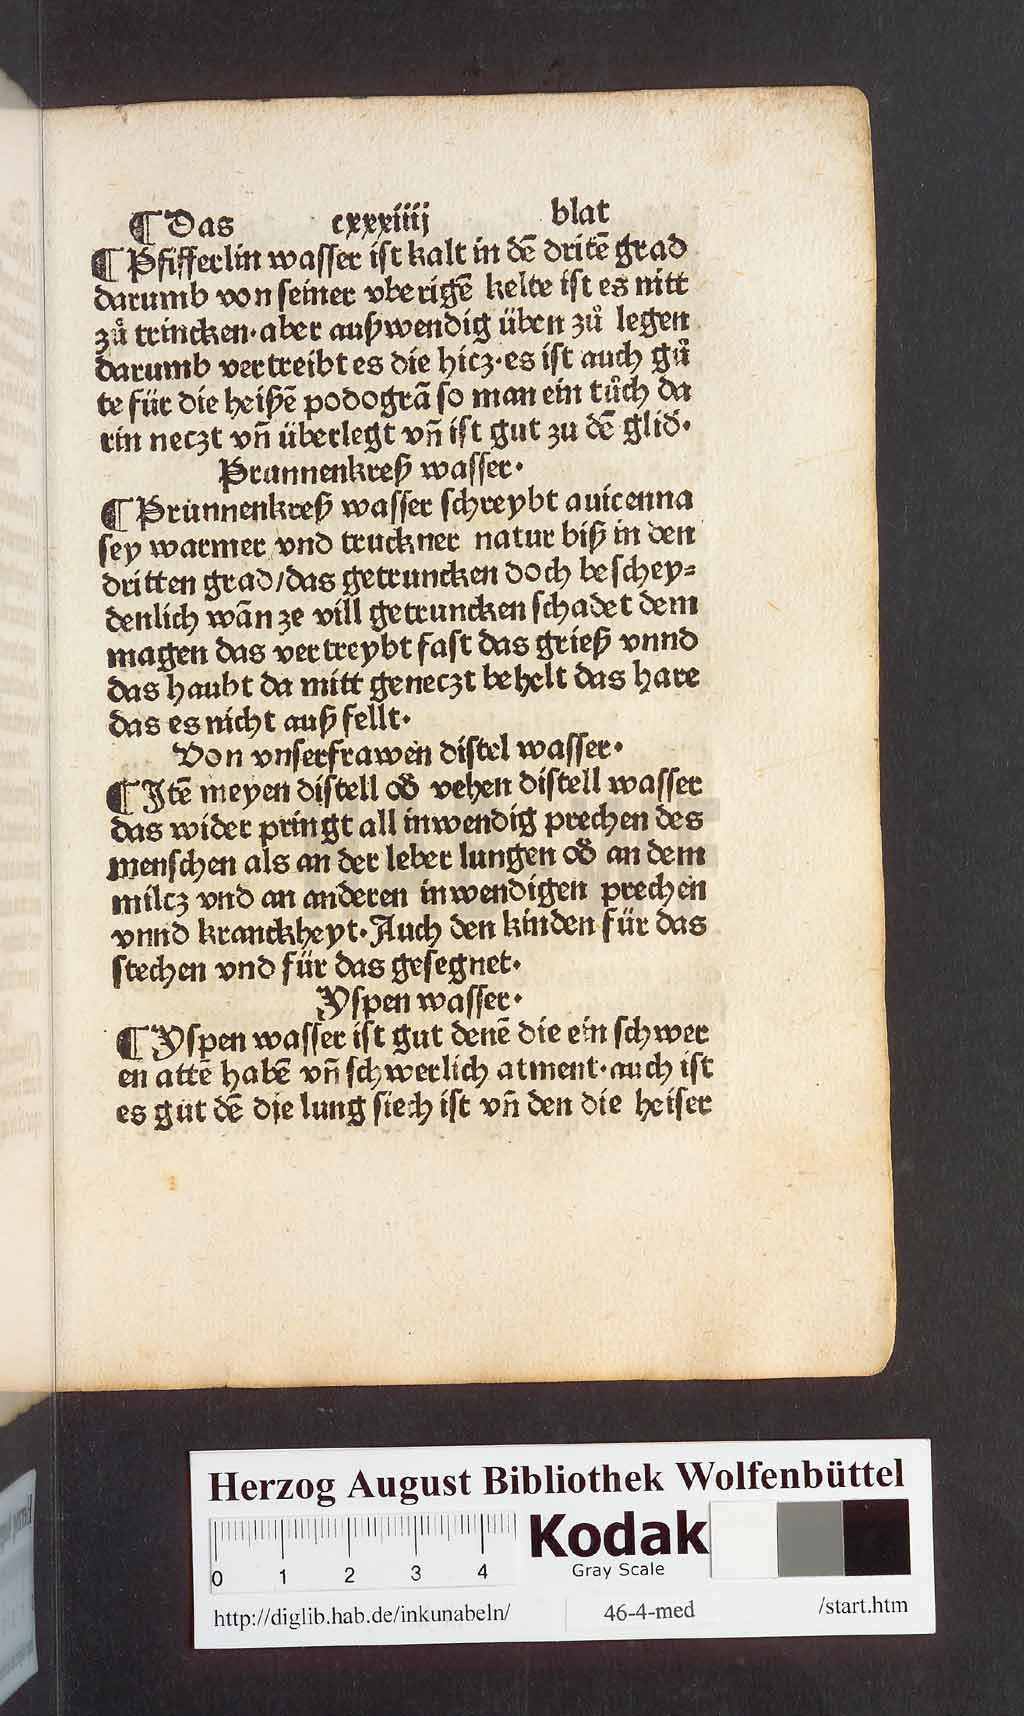 ¶ Das cxxxiiij blat
¶ Pfifferlin wasser ist kalt in dē dritē grad
darumb von seiner vberigē kelte ist es nitt
zů trincken·aber außwendig üben zů legen
darumb vertreibt es die hicz·es ist auch gů
te für die heißē podogrā so man ein tůch da
rin neczt vn̄ überlegt vn̄ ist gut zu dē glid̛·
Prunnenkreß wasser·
¶ Prunnenkreß wasser schreybt auicenna
sey warmer vnd truckner natur biß in den
dritten grad/das getruncken doch beschey⸗
denlich wān ze vill getruncken schadet dem
magen das vertreybt fast das grieß vnnd
das haubt da mitt geneczt behelt das hare
das es nicht auß fellt·
Von vnserfrawen distel wasser·
¶ Itē meyen distell od̛ vehen distell wasser
das wider pringt all inwendig prechen des
menschen als an der leber lungen od̛ an dem
milcz vnd an anderen inwendigen prechen
vnnd kranckheyt·Auch den kinden für das
stechen vnd für das gesegnet·
Yspen wasser·
¶ Yspen wasser ist gut denē die ein schwer
en attē habē vn̄ schwerlich atment·auch ist
es gut dē die lung siech ist vn̄ den die heiser
Herzog August Bibliothek Wolfenbüttel
0 1 2 3 4
Kodak
Gray Scale
http://diglib.hab.de/inkunabeln/ 46-4-med /start.htm